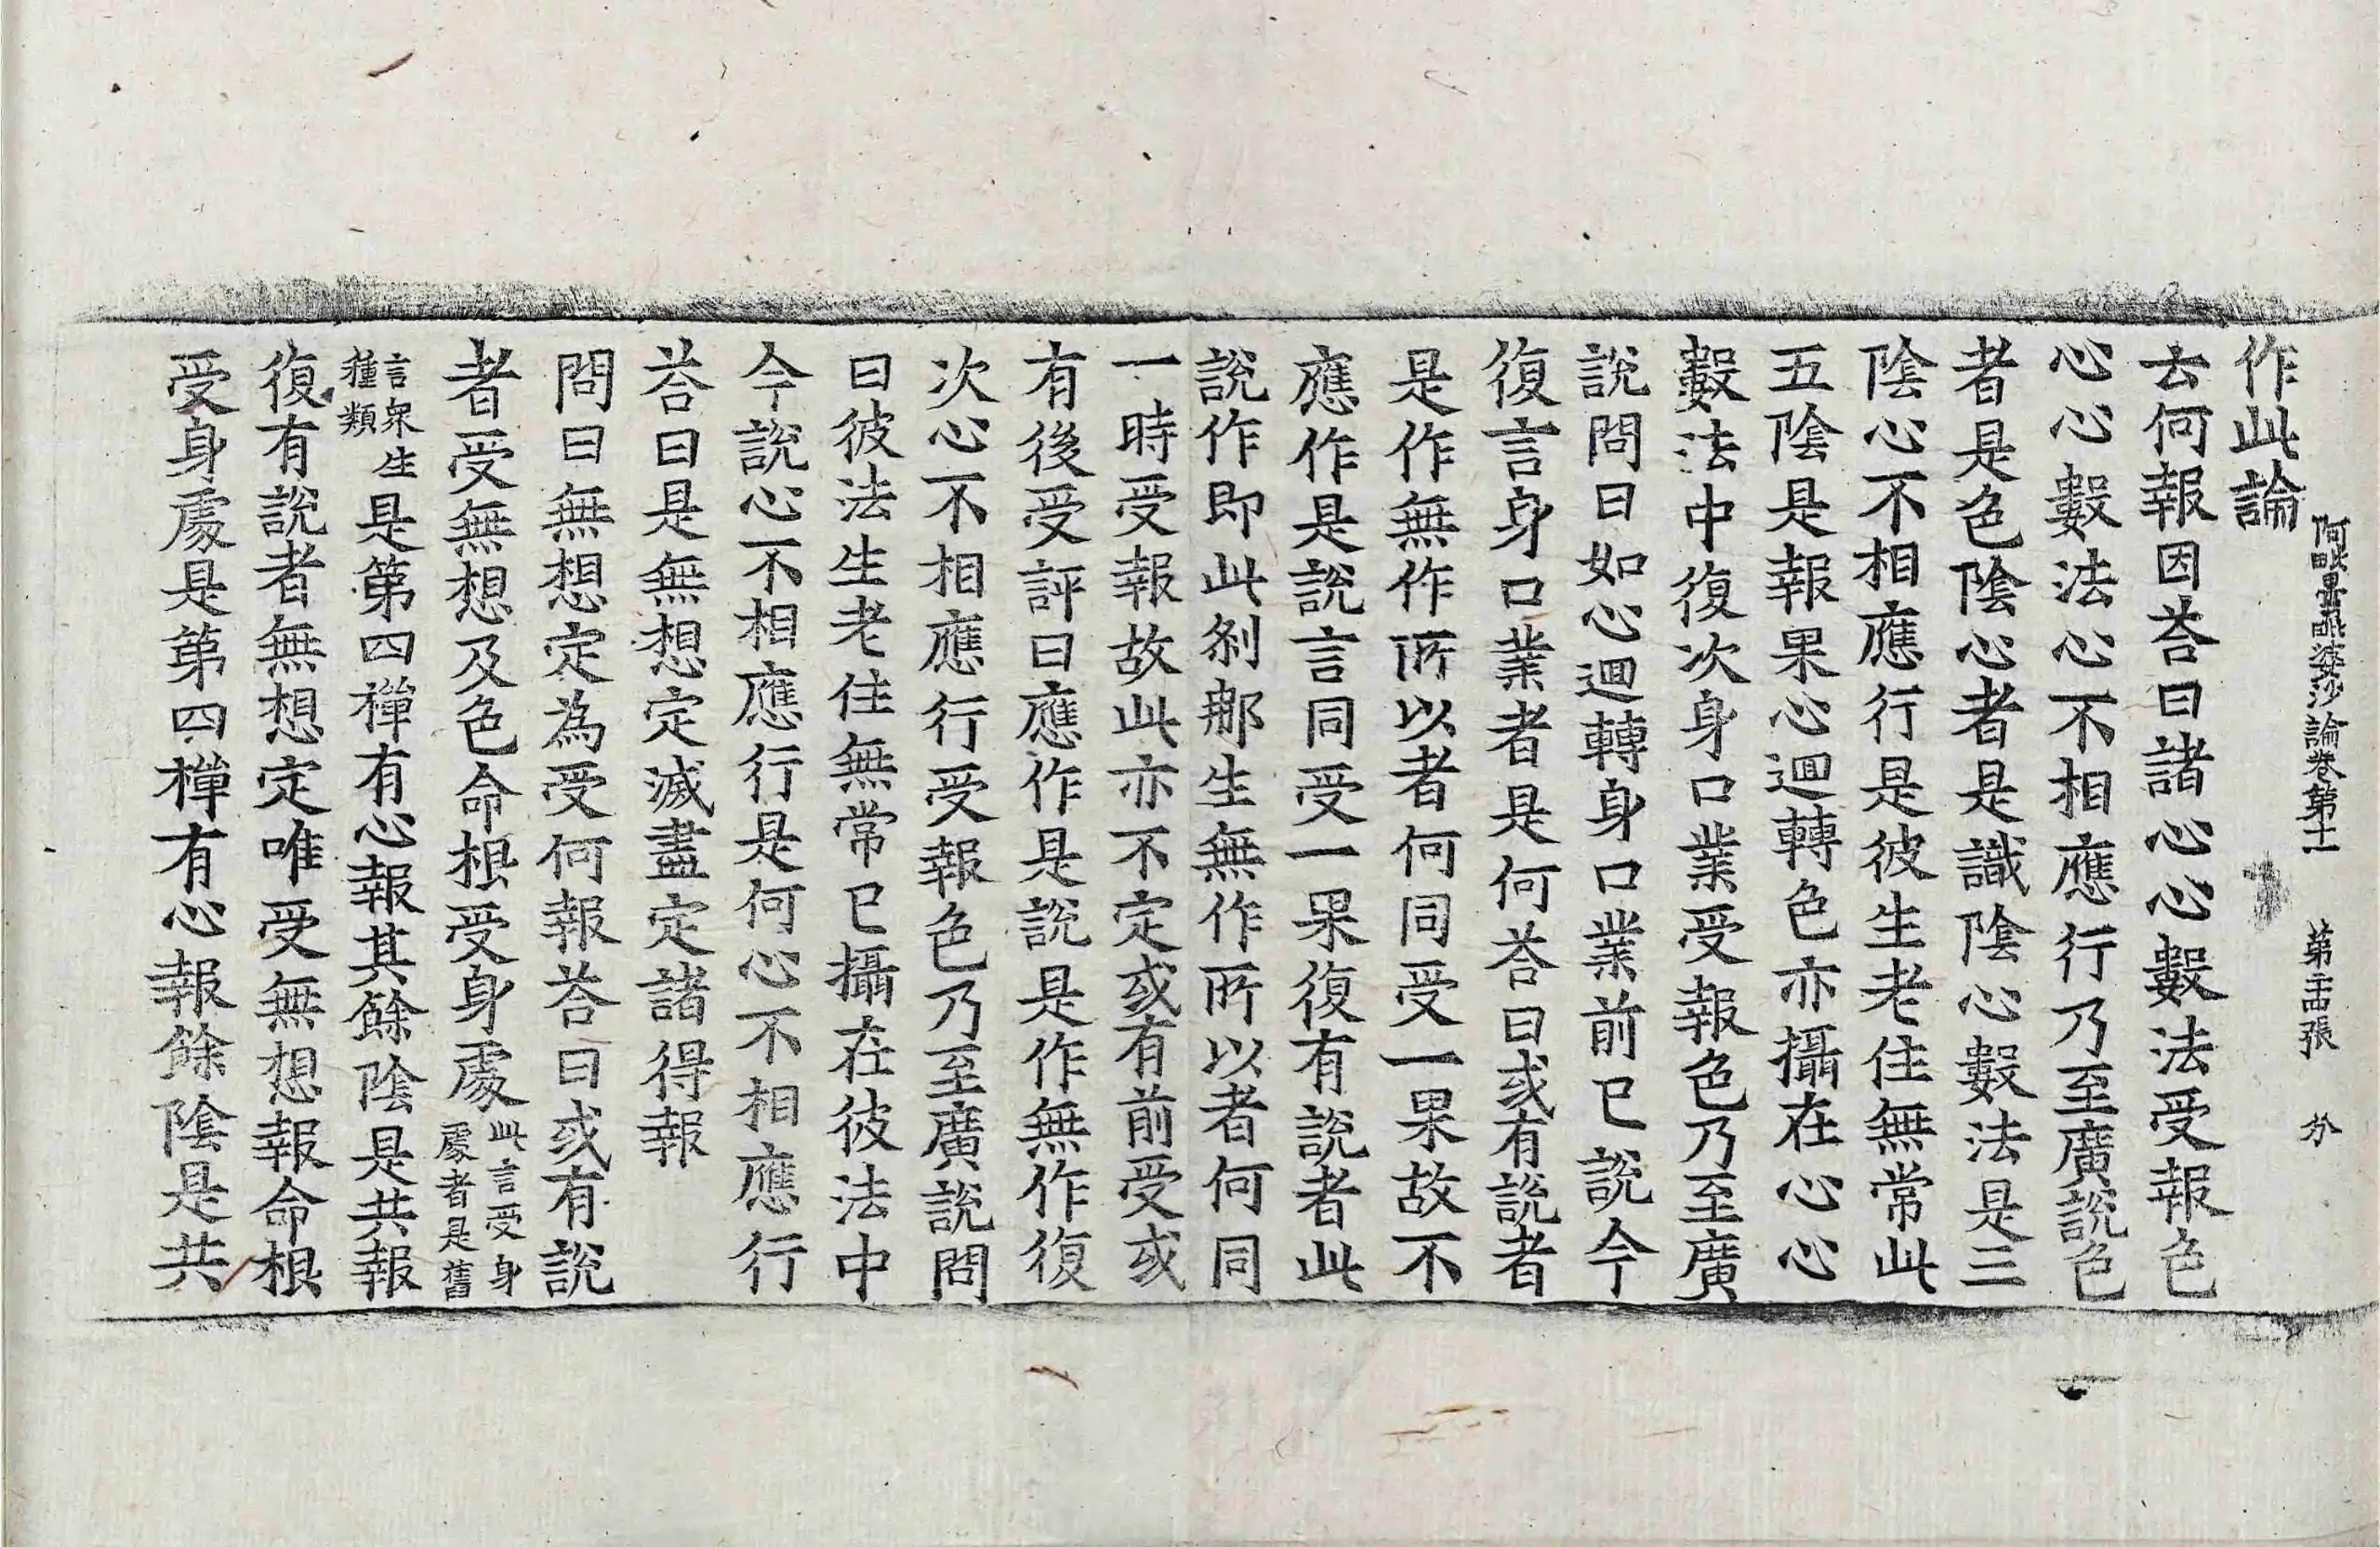 阿毗曇毗婆沙論卷第十一　第二十四張　分
作此論
云何報因荅曰諸心心數法受報色
心心數法心不相應行乃至廣說色
者是色陰心者是識陰心數法是三
陰心不相應行是彼生老住無常此
五陰是報果心迴轉色亦攝在心心
數法中復次身口業受報色乃至廣
說問曰如心迴轉身口業前已說今
復言身口業者是何荅曰或有說者
是作無作所以者何同受一果故不
應作是說言同受一果復有說者此
說作即此剎那生無作所以者何同
一時受報故此亦不定或有前受或
有後受評曰應作是說是作無作復
次心不相應行受報色乃至廣說問
曰彼法生老住無常已攝在彼法中
今說心不相應行是何心不相應行
荅曰是無想定滅盡定諸得報
問曰無想定為受何報荅曰或有說
者受無想及色命根受身處此言受身處者是舊
言衆生種類是第四禪有心報其餘陰是共報
復有說者無想定唯受無想報命根
受身處是第四禪有心報餘陰是共